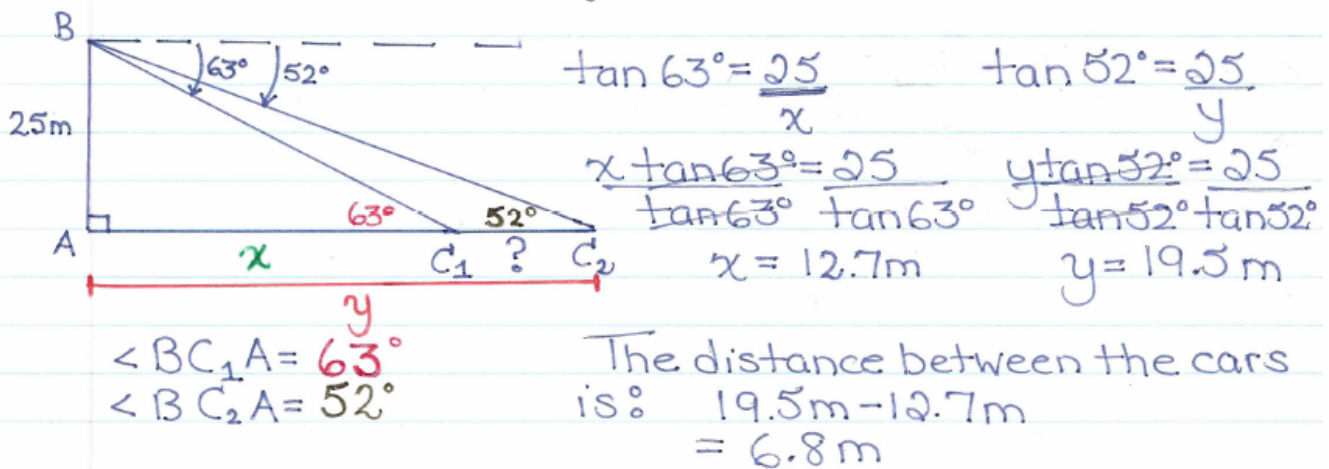 B
63° 52°
25m
63° 52°
A x C₁ ? C₂
y
<BC₁A= 63°
<BC₂A= 52°
tan 63°= 25/x
x tan63°/tan63° = 25/tan63°
x = 12.7m
tan 52°= 25/y
ytan52°/tan52° = 25/tan52°
y= 19.5m
The distance between the cars
is: 19.5m-12.7m
= 6.8m